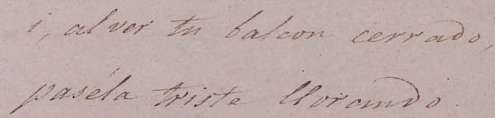 i, al ver tu balcon cerrado,
paséla triste llorando.